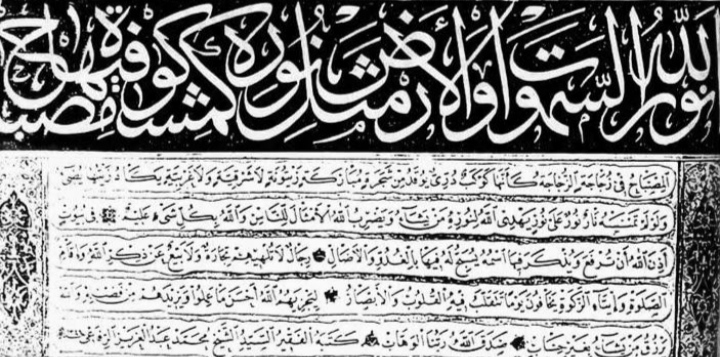 الله نور السموات والأرض مثل نوره كمشكوة فيها مصباح
المصباح في زجاجة الزجاجة كأنها كوكب دري يوقد من شجرة مباركة زيتونة لا شرقية ولا غربية يكاد زيتها يضئ
ولو لم تمسسه نار نور على نور يهدي الله لنوره من يشاء ويضرب الله الأمثال للناس والله بكل شيء عليم في بيوت
أذن الله أن ترفع ويذكر فيها اسمه يسبح له فيها بالغدو والآصال رجال لا تلهيهم تجارة ولا بيع عن ذكر الله وإقام
الصلوة وإيتاء الزكوة يخافون يوما تتقلب فيه القلوب والأبصار ليجزيهم الله أحسن ما عملوا ويزيدهم من فضله والله
يرزق من يشاء بغير حساب صدق الله ربنا الوهاب كتبه الفقير السيد الشيخ محمد عبد العزيز الرفاعي